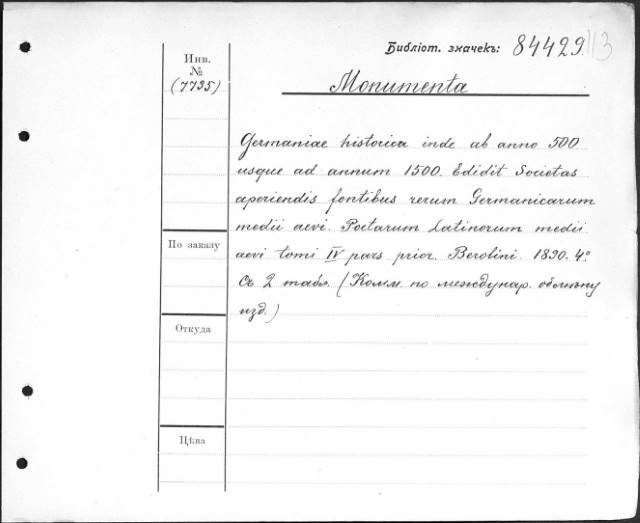 Библіот. значекъ: 84429.113
Инв.
№
(7735)
Monumenta
Germaniae historica inde ab anno 500
usque ad annum 1500. Edidit Societas
aperiendis fontibus rerum Germanicarum
medii aevi. Poetarum Latinorum medii
aevi tomi IV pars prior. Berolini. 1890. 4º.
Съ 2 табл. (Комм. по междунар. обмѣну
изд.)
По заказу
Откуда
Цѣна